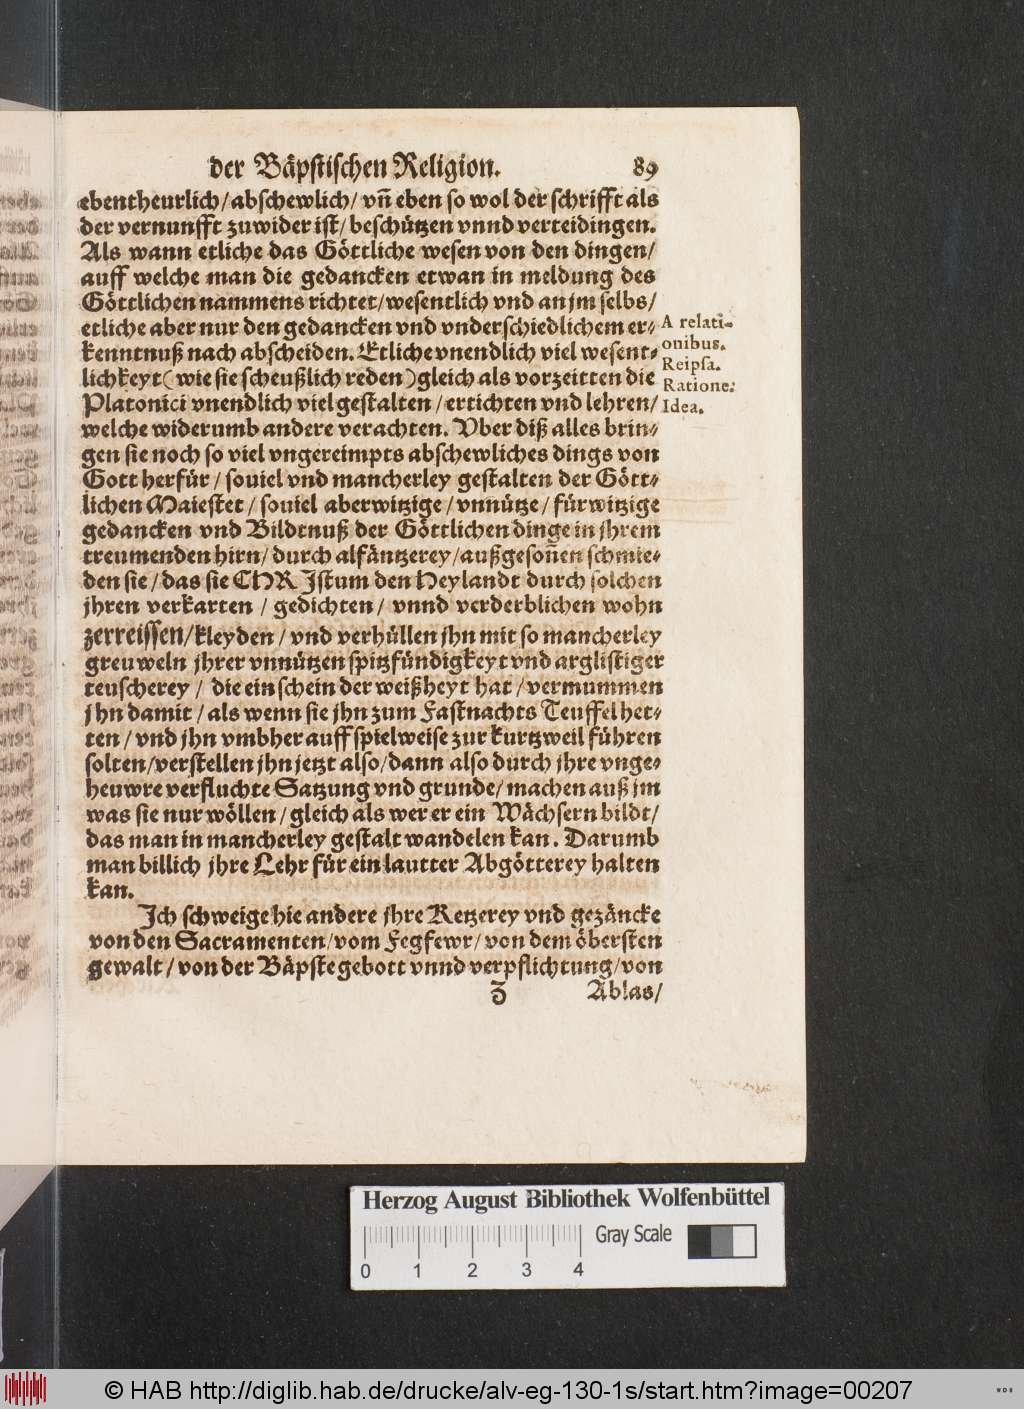 der Bäpstischen Religion. 89
ebentheurlich/ abschewlich/ vñ eben so wol der schrifft als
der vernunfft zuwider ist/ beschützen vnnd verteidingen.
Als wann etliche das Göttliche wesen von den dingen/
auff welche man die gedancken etwan in meldung des
Göttlichen nammens richtet/ wesentlich vnd an jm selbs/
etliche aber nur den gedancken vnd vnderschiedlichem er-
kenntnuß nach abscheiden. Etliche vnendlich viel wesent-
lichkeyt (wie sie scheußlich reden) gleich als vorzeitten die
Platonici vnendlich viel gestalten/ ertichten vnd lehren/
welche widerumb andere verachten. Vber diß alles brin-
gen sie noch so viel vngereimpts abschewliches dings von
Gott herfür/ souiel vnd mancherley gestalten der Gött-
lichen Maiestet/ souiel aberwitzige/ vnnütze/ fürwitzige
gedancken vnd Bildtnuß der Göttlichen dinge in jhrem
treumenden hirn/ durch alfäntzerey/ außgesoñen schmie-
den sie/ das sie CHRIstum den Heylandt durch solchen
jhren verkarten/ gedichten/ vnnd verderblichen wohn
zerreissen/ kleyden/ vnd verhüllen jhn mit so mancherley
greuweln jhrer vnnützen spitzfündigkeyt vnd arglistiger
teuscherey/ die ein schein der weißheyt hat/ vermummen
jhn damit/ als wenn sie jhn zum Fastnachts Teuffel het-
ten/ vnd jhn vmbher auff spielweise zur kurtzweil führen
solten/ verstellen jhn jetzt also/ dann also durch jhre vnge-
heuwre verfluchte Satzung vnd grunde/ machen auß jm
was sie nur wöllen/ gleich als wer er ein Wächsern bildt/
das man in mancherley gestalt wandelen kan. Darumb
man billich jhre Lehr für ein lautter Abgötterey halten
kan.
Ich schweige hie andere jhre Ketzerey vnd gezäncke
von den Sacramenten/ vom Fegfewr/ von dem öbersten
gewalt/ von der Bäpste gebott vnnd verpflichtung/ von
Z Ablas/
A relati-
onibus.
Reipsa.
Ratione.
Idea.
Herzog August Bibliothek Wolfenbüttel
Gray Scale
0 1 2 3 4
© HAB http://diglib.hab.de/drucke/alv-eg-130-1s/start.htm?image=00207